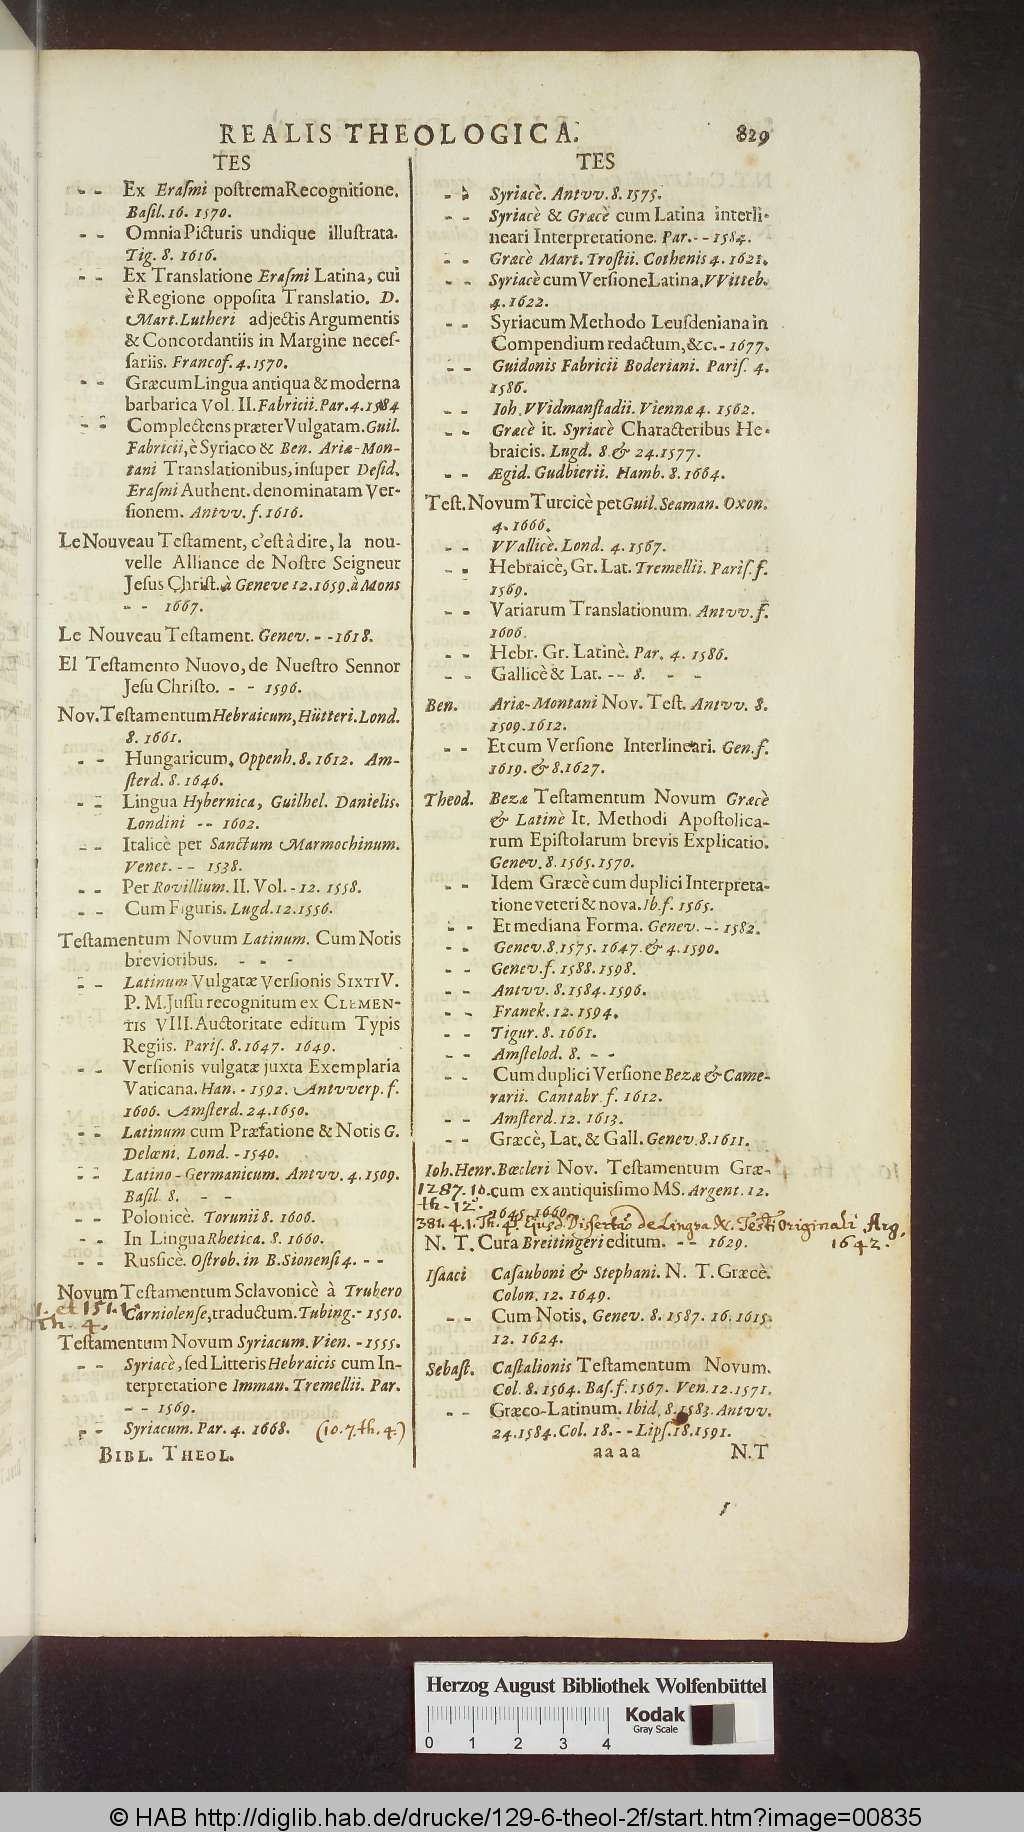 REALIS THEOLOGICA. 829
TES
- - Ex Eraſmi poſtrema Recognitione.
Baſil. 16. 1570.
- - Omnia Picturis undique illuſtrata.
Tig. 8. 1616.
- - Ex Translatione Eraſmi Latina, cui
è Regione oppoſita Translatio. D.
Mart. Lutheri adjectis Argumentis
& Concordantiis in Margine neceſ-
ſariis. Francof. 4. 1570.
- - Græcum Lingua antiqua & moderna
barbarica Vol. II. Fabricii. Par. 4. 1584
- - Complectens præter Vulgatam. Guil.
Fabricii, è Syriaco & Ben. Ariæ-Mon-
tani Translationibus, inſuper Deſid.
Eraſmi Authent. denominatam Ver-
ſionem. Antvv. f. 1616.
Le Nouveau Teſtament, c'eſt à dire, la nou-
velle Alliance de Noſtre Seigneur
Jesus Chriſt. à Geneve 12. 1659. à Mons
- - 1667.
Le Nouveau Teſtament. Genev. - - 1618.
El Teſtamento Nuovo, de Nueſtro Sennor
Jeſu Chriſto. - - 1596.
Nov. Teſtamentum Hebraicum, Hütteri. Lond.
8. 1661.
- - Hungaricum. Oppenh. 8. 1612. Am-
ſterd. 8. 1646.
- - Lingua Hybernica, Guilhel. Danielis.
Londini - - 1602.
- - Italicè per Sanctum Marmochinum.
Venet. - - 1538.
- - Per Rovillium. II. Vol. - 12. 1558.
- - Cum Figuris. Lugd. 12. 1556.
Teſtamentum Novum Latinum. Cum Notis
brevioribus. - - -
- - Latinum Vulgatæ Verſionis SIXTI V.
P. M. Juſſu recognitum ex CLEMEN-
TIS VIII. Auctoritate editum Typis
Regiis. Pariſ. 8. 1647. 1649.
- - Verſionis vulgatæ juxta Exemplaria
Vaticana. Han. - 1592. Antvverp. f.
1606. Amſterd. 24. 1650.
- - Latinum cum Præfatione & Notis G.
Delæni. Lond. - 1540.
- - Latino-Germanicum. Antvv. 4. 1509.
Baſil 8. - -
- - Polonicè. Torunii 8. 1606.
- - In Lingua Rhetica. 8. 1660.
- - Ruſſicè. Oſtrob. in B. Sionenſi 4. - -
Novum Teſtamentum Sclavonicè à Trubero
1. et 151. 1. Carniolenſe, traductum. Tubing. - 1550.
Th. 4.
Teſtamentum Novum Syriacum. Vien. - 1555.
- - Syriacè, ſed Litteris Hebraicis cum In-
terpretatione Imman. Tremellii. Par.
- - 1569.
- - Syriacum. Par. 4. 1668. (10. 7. th. 4.)
BIBL. THEOL.
TES
- - Syriacè. Antvv. 8. 1575.
- - Syriacè & Græcè cum Latina interli-
neari Interpretatione. Par. - - 1584.
- - Græcè Mart. Troſtii. Cothenis 4. 1621.
- - Syriacè cum Verſione Latina. VVitteb.
4. 1622.
- - Syriacum Methodo Leuſdeniana in
Compendium redactum, &c. - 1677.
- - Guidonis Fabricii Boderiani. Pariſ. 4.
1586.
- - Ioh. VVidmanſtadii. Viennæ 4. 1562.
- - Græcè it. Syriacè Characteribus He-
braicis. Lugd. 8. & 24. 1577.
- - Ægid. Gudbierii. Hamb. 8. 1664.
Teſt. Novum Turcicè per Guil. Seaman. Oxon.
4. 1666.
- - VVallicè. Lond. 4. 1567.
- - Hebraicè, Gr. Lat. Tremellii. Pariſ. f.
1569.
- - Variarum Translationum. Antvv. f.
1606.
- - Hebr. Gr. Latinè. Par. 4. 1586.
- - Gallicè & Lat. - - 8. - -
Ben. Ariæ-Montani Nov. Teſt. Antvv. 8.
1509. 1612.
- - Et cum Verſione Interlineari. Gen. f.
1619. & 8. 1627.
Theod. Bezæ Teſtamentum Novum Græcè
& Latinè It. Methodi Apoſtolica-
rum Epiſtolarum brevis Explicatio.
Genev. 8. 1565. 1570.
- - Idem Græcè cum duplici Interpreta-
tione veteri & nova. Ib. f. 1565.
- - Et mediana Forma. Genev. - - 1582.
- - Genev. 8. 1575. 1647. & 4. 1590.
- - Genev. f. 1588. 1598.
- - Antvv. 8. 1584. 1596.
- - Franek. 12. 1594.
- - Tigur. 8. 1661.
- - Amſtelod. 8. - -
- - Cum duplici Verſione Bezæ & Came-
rarii. Cantabr. f. 1612.
- - Amſterd. 12. 1613.
- - Græcè, Lat. & Gall. Genev. 8. 1611.
Ioh. Henr. Bœcleri Nov. Teſtamentum Græ-
1287. 10. cum ex antiquiſſimo MS. Argent. 12.
th. - 12. 1645. 1660.
381. 4. 1. Th. 4. Ejusd. Dissertaō de Lingua N. Testi Originali. Arg.
1642.
N. T. Cura Breitingeri editum. - - 1629.
Iſaaci Caſauboni & Stephani. N. T. Græcè.
Colon. 12. 1649.
- - Cum Notis. Genev. 8. 1587. 16. 1615.
12. 1624.
Sebaſt. Caſtalionis Teſtamentum Novum.
Col. 8. 1564. Baſ. f. 1567. Ven. 12. 1571.
- - Græco-Latinum. Ibid. 8. 1583. Antvv.
24. 1584. Col. 18. - - Lipſ. 18. 1591.
aaaa N. T
Herzog August Bibliothek Wolfenbüttel
Kodak
Gray Scale
0 1 2 3 4
© HAB http://diglib.hab.de/drucke/129-6-theol-2f/start.htm?image=00835